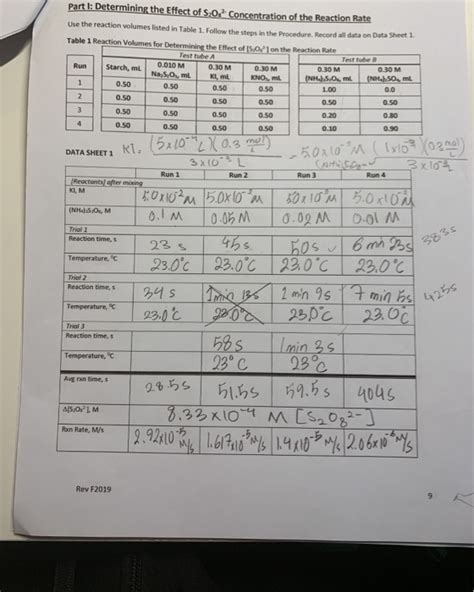 Part I: Determining the Effect of S₂O₈²⁻ Concentration of the Reaction Rate
Use the reaction volumes listed in Table 1. Follow the steps in the Procedure. Record all data on Data Sheet 1.
Table 1 Reaction Volumes for Determining the Effect of [S₂O₈²⁻] on the Reaction Rate
Test tube A Test tube B
Run Starch, mL 0.010 M Na₂S₂O₃, mL 0.30 M KI, mL 0.30 M KNO₃, mL 0.30 M (NH₄)₂S₂O₈, mL 0.30 M (NH₄)₂SO₄, mL
1 0.50 0.50 0.50 0.50 1.00 0.0
2 0.50 0.50 0.50 0.50 0.50 0.50
3 0.50 0.50 0.50 0.50 0.20 0.80
4 0.50 0.50 0.50 0.50 0.10 0.90
DATA SHEET 1 KI = (5x10⁻⁴L)(0.3 mol/L) / 3x10⁻³ L = 5.0x10⁻²M (1x10⁻³)(0.3 mol/L) / 3x10⁻³
Run 1 Run 2 Run 3 Run 4
[Reactants] after mixing
KI, M 5.0x10⁻²M 5.0x10⁻²M 5.0x10⁻²M 5.0x10⁻²M
(NH₄)₂S₂O₈, M 0.1 M 0.05 M 0.02 M 0.01 M
Trial 1
Reaction time, s 23 s 45s 50s 6 min 23s 383s
Temperature, °C 23.0°C 23.0°C 23.0°C 23.0°C
Trial 2
Reaction time, s 34 s 1min 13s 1 min 9s 7 min 5s 425s
Temperature, °C 23.0°C 23.0°C 23.0°C 23.0°C
Trial 3
Reaction time, s 58s 1min 3s
Temperature, °C 23°C 23°C
Avg rxn time, s 28.5s 51.5s 59.5s 404s
Δ[S₂O₈²⁻], M 8.33x10⁻⁴ M [S₂O₈²⁻]
Rxn Rate, M/s 2.92x10⁻⁵ M/s 1.617x10⁻⁵ M/s 1.4x10⁻⁵ M/s 2.06x10⁻⁶ M/s
Rev F2019
9